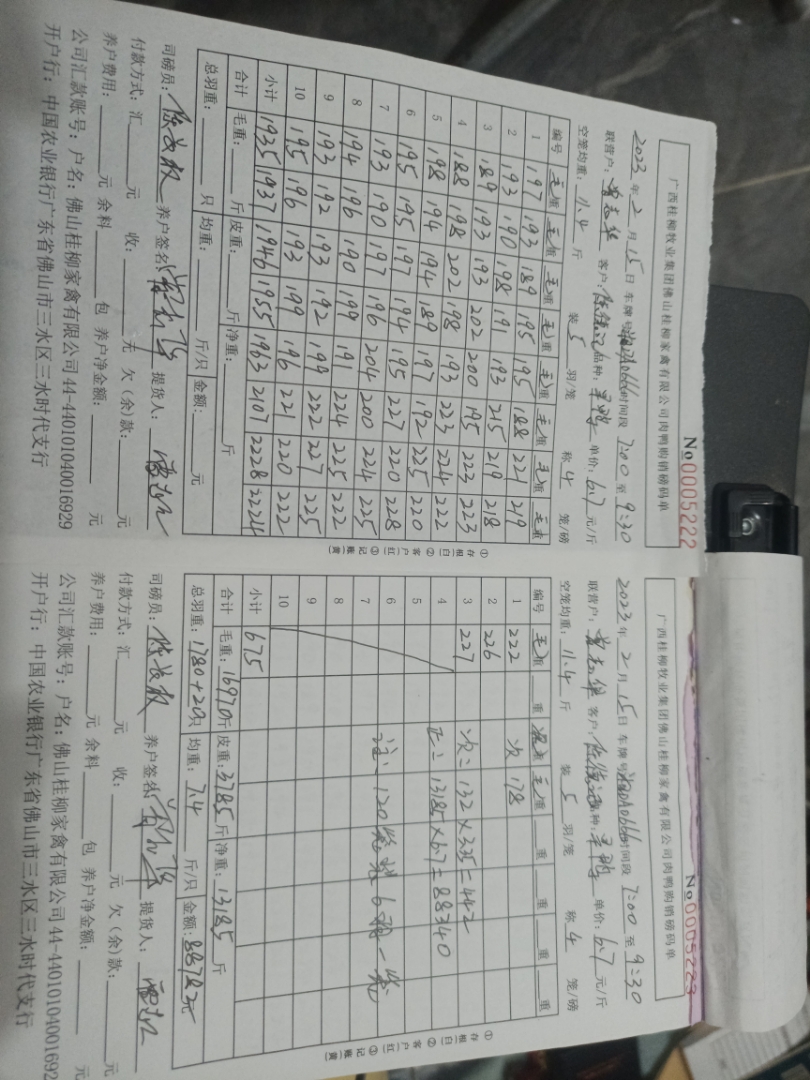 广西桂柳牧业集团佛山桂柳家禽有限公司肉鸭购销磅码单
No 0005222
2023 年 2 月 15 日 车牌号 时间段 7:00 至 9:30
联营户: 客户: 品种: 单价: 6.7 元/斤
空笼均重: 11.4 斤 装 5 羽/笼 称 4 笼/磅
编号 毛重 毛重 毛重 毛重 毛重 毛重 毛重 毛重
1 197 193 189 195 195 188 221 219
2 193 190 198 191 193 215 219 218
3 189 193 193 202 200 195 223 223
4 188 198 202 198 193 223 224 222
5 198 194 194 189 197 192 225 220
6 195 195 197 194 195 227 220 228
7 193 190 197 196 204 200 224 225
8 194 196 190 199 191 224 225 222
9 193 192 193 192 199 222 227 225
10 195 196 193 199 196 221 220 222
小计 1935 1937 1946 1955 1963 2107 2228 2224
合计 毛重: 斤 皮重: 斤 净重: 斤
总羽重: 只 均重: 斤/只 金额: 元
司磅员: 养户签名: 提货人:
付款方式: 汇 元 收: 元 欠(余)款: 元
养户费用: 元 余料 包 养户净金额: 元
公司汇款账号: 户名: 佛山桂柳家禽有限公司 44-440101040016929
开户行: 中国农业银行广东省佛山市三水区三水时代支行
①存根(白) ②客户(红) ③记账(黄)
广西桂柳牧业集团佛山桂柳家禽有限公司肉鸭购销磅码单
No 0005223
2023 年 2 月 15 日 车牌号 时间段 7:00 至 9:30
联营户: 客户: 品种: 单价: 6.7 元/斤
空笼均重: 11.4 斤 装 5 羽/笼 称 4 笼/磅
编号 毛重 重 毛重 重 重 重 重
1 222 次 178
2 226
3 227 次= 132×3.35=442
4 正= 13185×6.7=88340
5
6 注: 120笼 6 一笼
7
8
9
10
小计 675
合计 毛重: 16970 斤 皮重: 3785 斤 净重: 13185 斤
总羽重: 1780+20 只 均重: 7.4 斤/只 金额: 88782元
司磅员: 养户签名: 提货人:
付款方式: 汇 元 收: 元 欠(余)款: 元
养户费用: 元 余料 包 养户净金额: 元
公司汇款账号: 户名: 佛山桂柳家禽有限公司 44-44010104001692
开户行: 中国农业银行广东省佛山市三水区三水时代支行
①存根(白) ②客户(红) ③记账(黄)